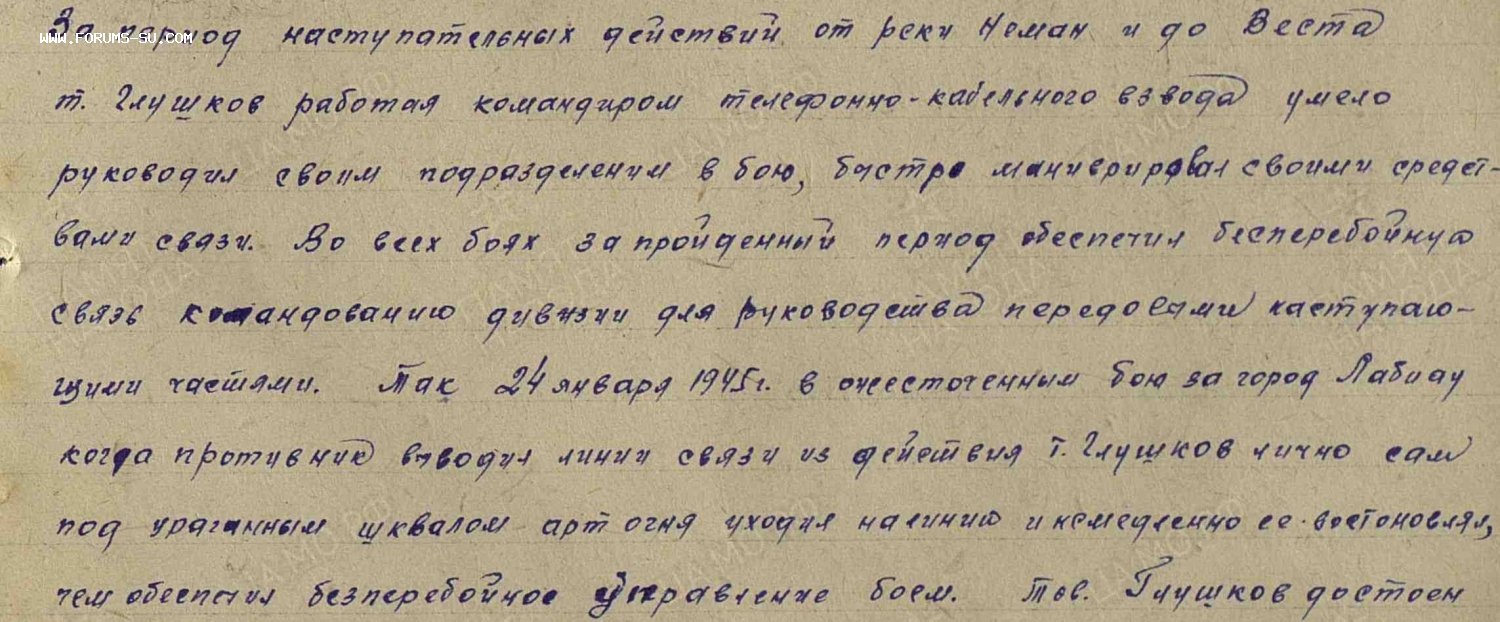 За период наступательных действий от реки Неман и до Веста
WWW.FORUMS-SU.COM
т. Глушков работая командиром телефонно-кабельного взвода умело
руководил своим подразделеним в бою, быстро маниврировал своими средст-
вами связи. Во всех боях за пройденный период обеспечил бесперебойную
связь командованию дивизии для руководства передовыми наступаю-
щими частями. Так 24 января 1945 г. в ожесточенным бою за город Лабиау
когда противник выводил линии связи из действия т. Глушков лично сам
под ураганным шквалом арт огня уходил на линию и немедленно ее востоновлял,
чем обеспечил безперебойное управление боем. Тов. Глушков достоен